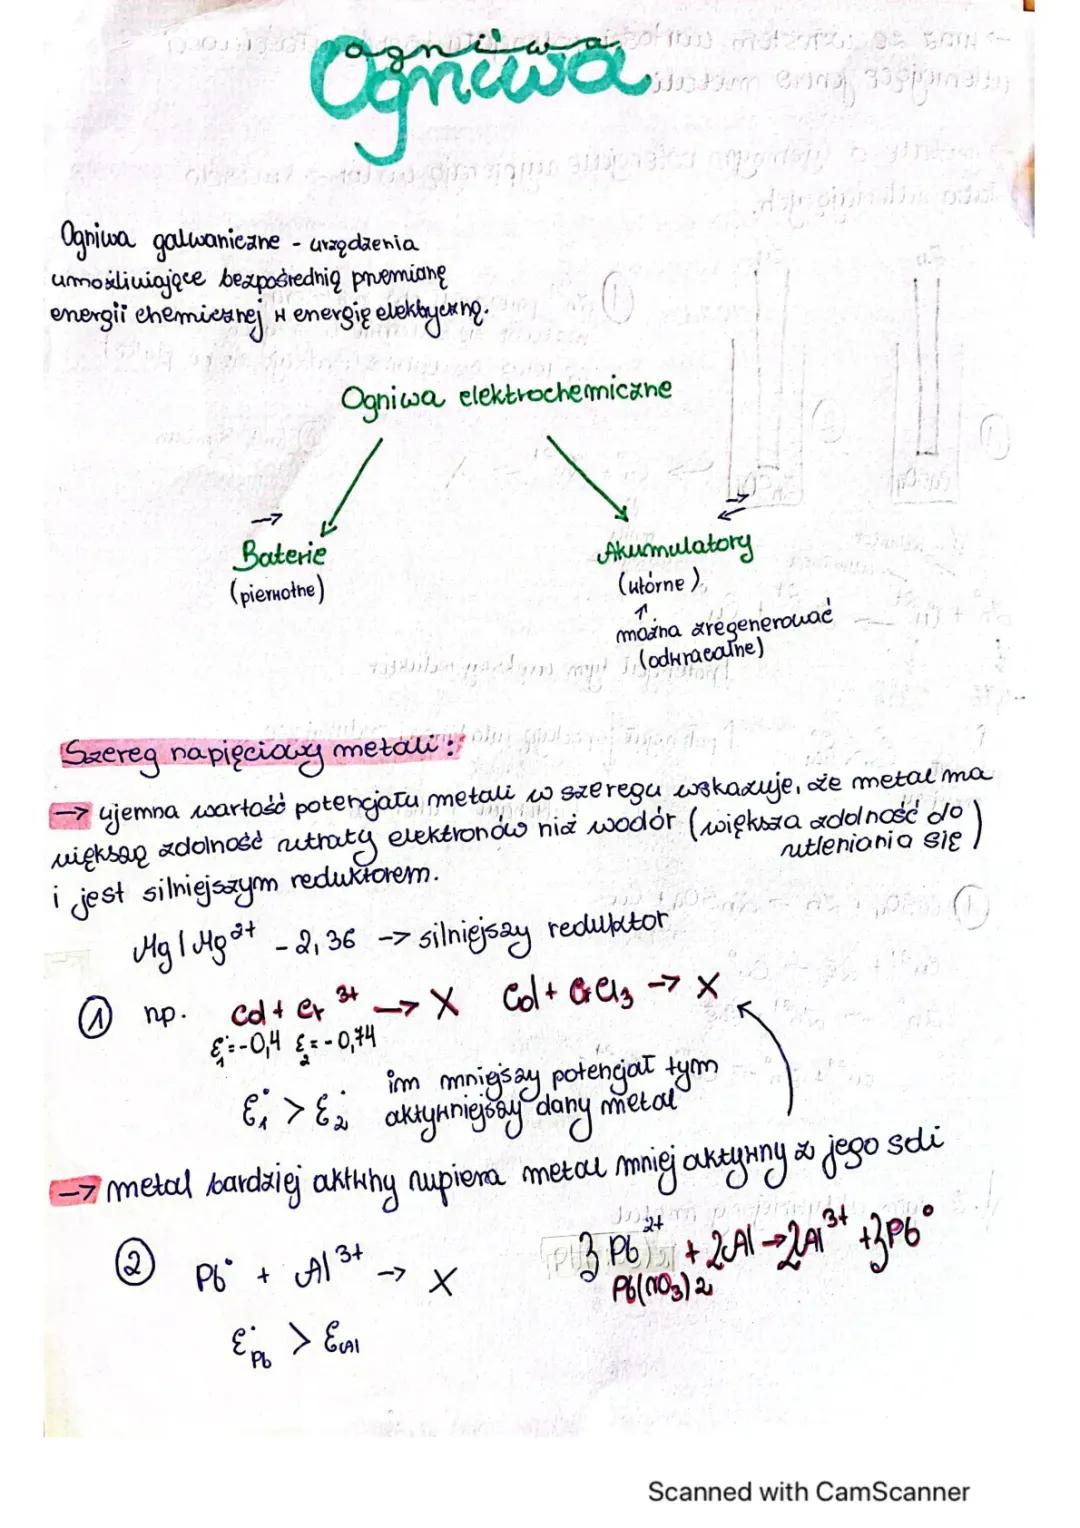 Ogniwa
ogniwa
Ogniwa galwaniczne - urządzenia
umożliwiające bezpośrednią przemianę
energii chemicznej w energię elektryczną.
Ogniwa elektrochemiczne
→ ⇄
Baterie Akumulatory
(pierwotne) (wtórne)
↑
można zregenerować
(odwracalne)
Szereg napięciowy metali:
→ ujemna wartość potencjału metali w szeregu wskazuje, że metal ma
większą zdolność utraty elektronów niż wodór (większa zdolność do
utleniania się)
i jest silniejszym reduktorem.
Mg | Mg²⁺ -2,36 -> silniejszy reduktor
① np. Cd + Cr³⁺ → X Cd + CrCl₃ → X
ε₁°=-0,4 ε₂°=-0,74
ε₁° > ε₂° im mniejszy potencjał tym
aktywniejszy dany metal
→ metal bardziej aktywny wypiera metal mniej aktywny z jego soli
② Pb° + Al³⁺ → X 3Pb²⁺ + 2Al → 2Al³⁺ + 3Pb°
Pb(NO₃)₂
ε°Pb > εAl
Scanned with CamScanner